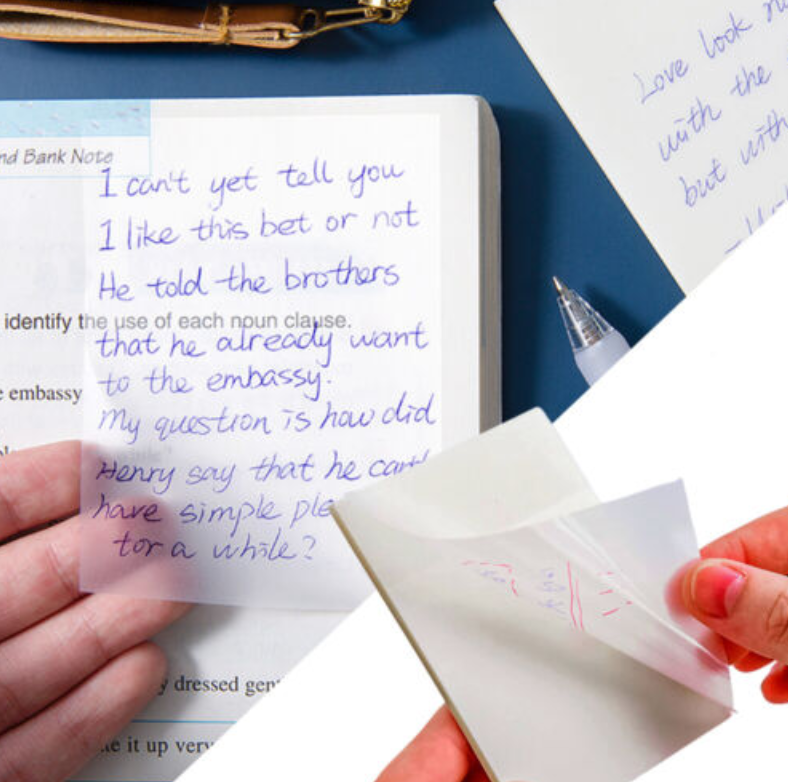 nd Bank Note
I can't yet tell you
I like this bet or not
He told the brothers
identify the use of each noun clause.
that he already want
to the embassy.
e embassy
My question is how did
Henry say that he can't
have simple ple
for a while?
y dressed gen
e it up very
Love look no
with the
but with